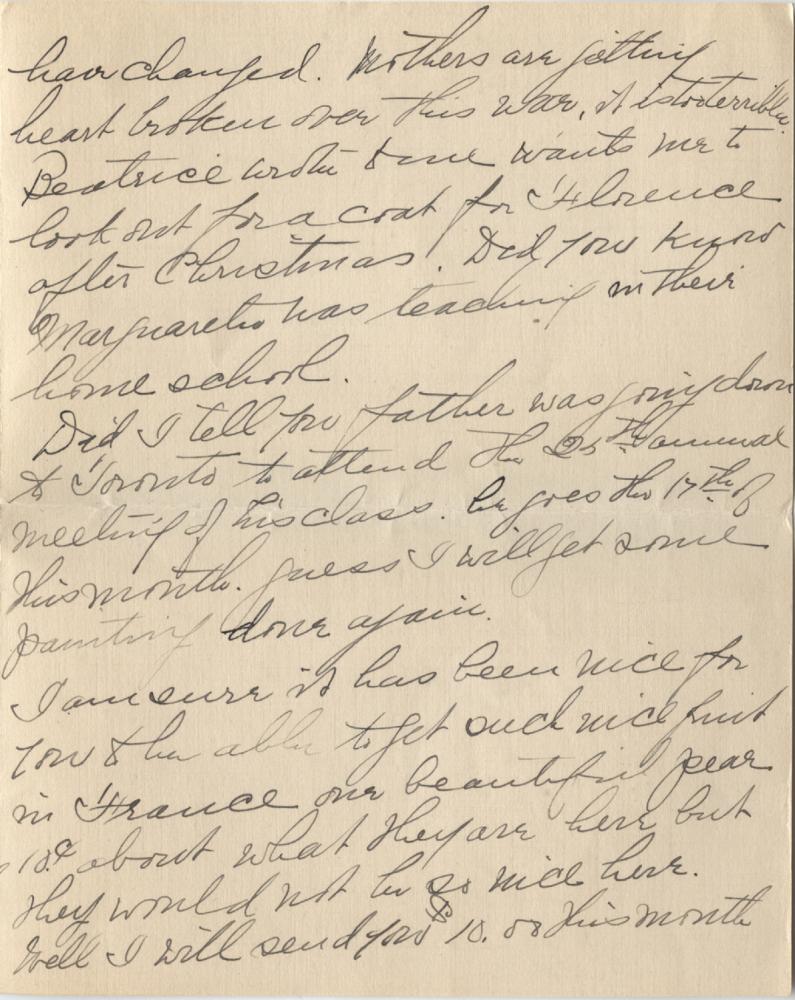 have changed. Mothers are getting
heart broken over this war, it is too terrible.
Beatrice wrote & one wants me to
look out for a coat for Florence
after Christmas. Did you know
Marguareto has teaching in their
home school.
Did I tell you father was going down
to Toronto to attend the 25th annual
meeting of his class. he goes the 17th of
this month. guess I will get some
painting done again.
I am sure it has been nice for
you to be able to get such nice fruit
in France one beautiful pear
10¢ about what they are here but
they would not be so nice here.
Well I will send you $10.00 this month